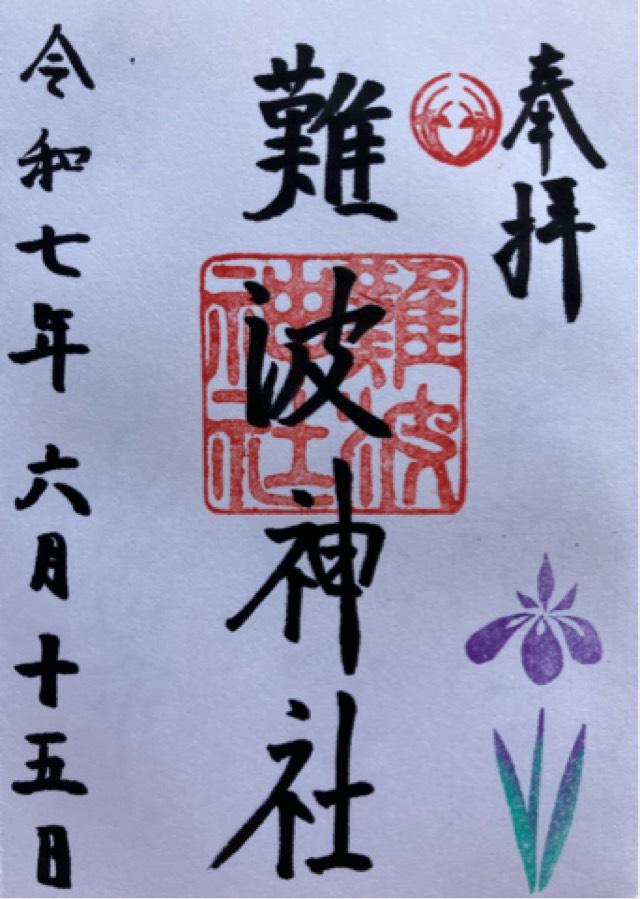 奉拝
難波神社
難波神社
令和七年六月十五日